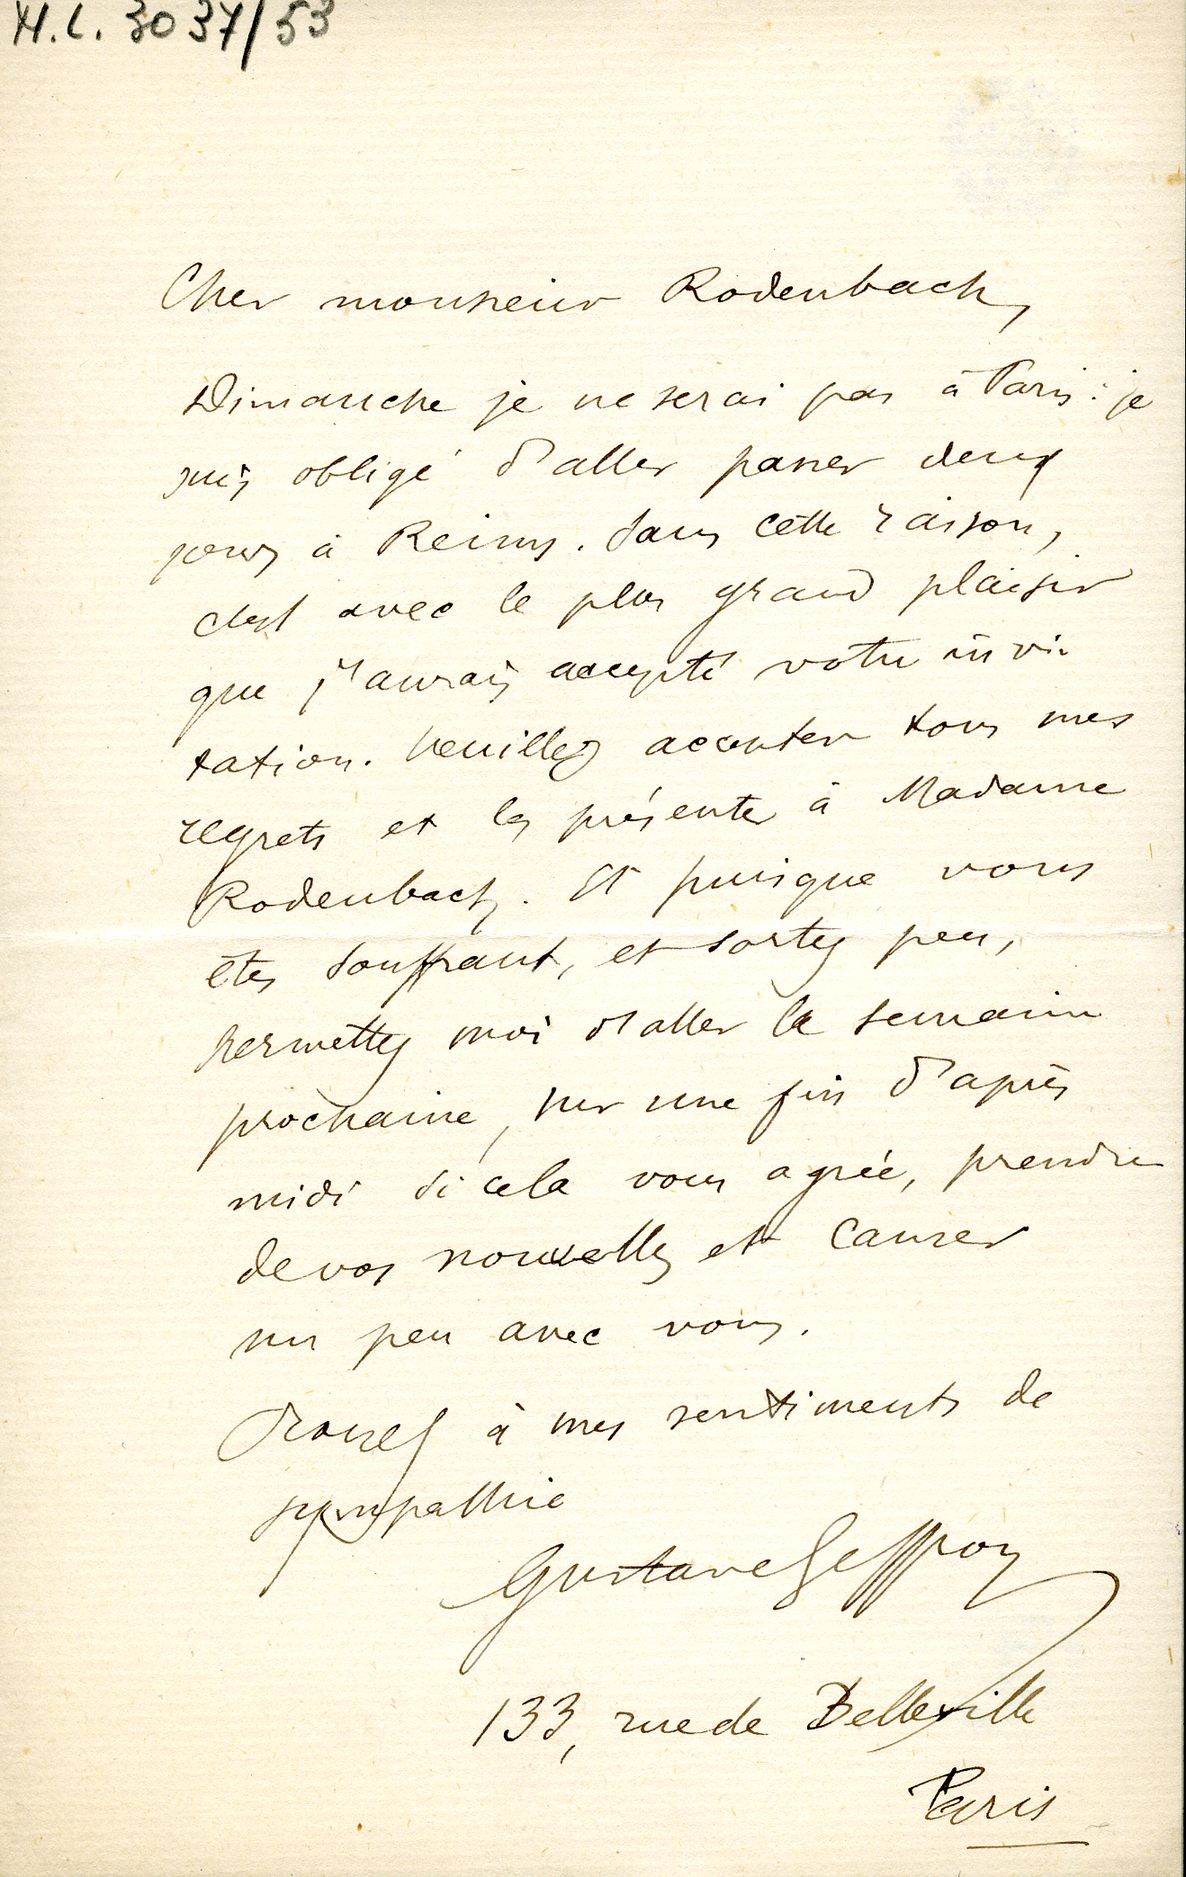 M.L. 3037/53
Cher monsieur Rodenbach,
Dimanche je ne serai pas à Paris : je
suis obligé d'aller passer deux
jours à Reims. Sans cette raison,
c'est avec le plus grand plaisir
que j'aurais accepté votre invi-
tation. Veuillez accepter tous mes
regrets et les présenter à Madame
Rodenbach. Et puisque vous
êtes souffrant, et sortez peu,
permettez moi d'aller la semaine
prochaine, sur une fin d'après
midi si cela vous agrée, prendre
de vos nouvelles et causer
un peu avec vous.
Croyez à mes sentiments de
sympathie
Gustave Geffroy
133, rue de Belleville
Paris